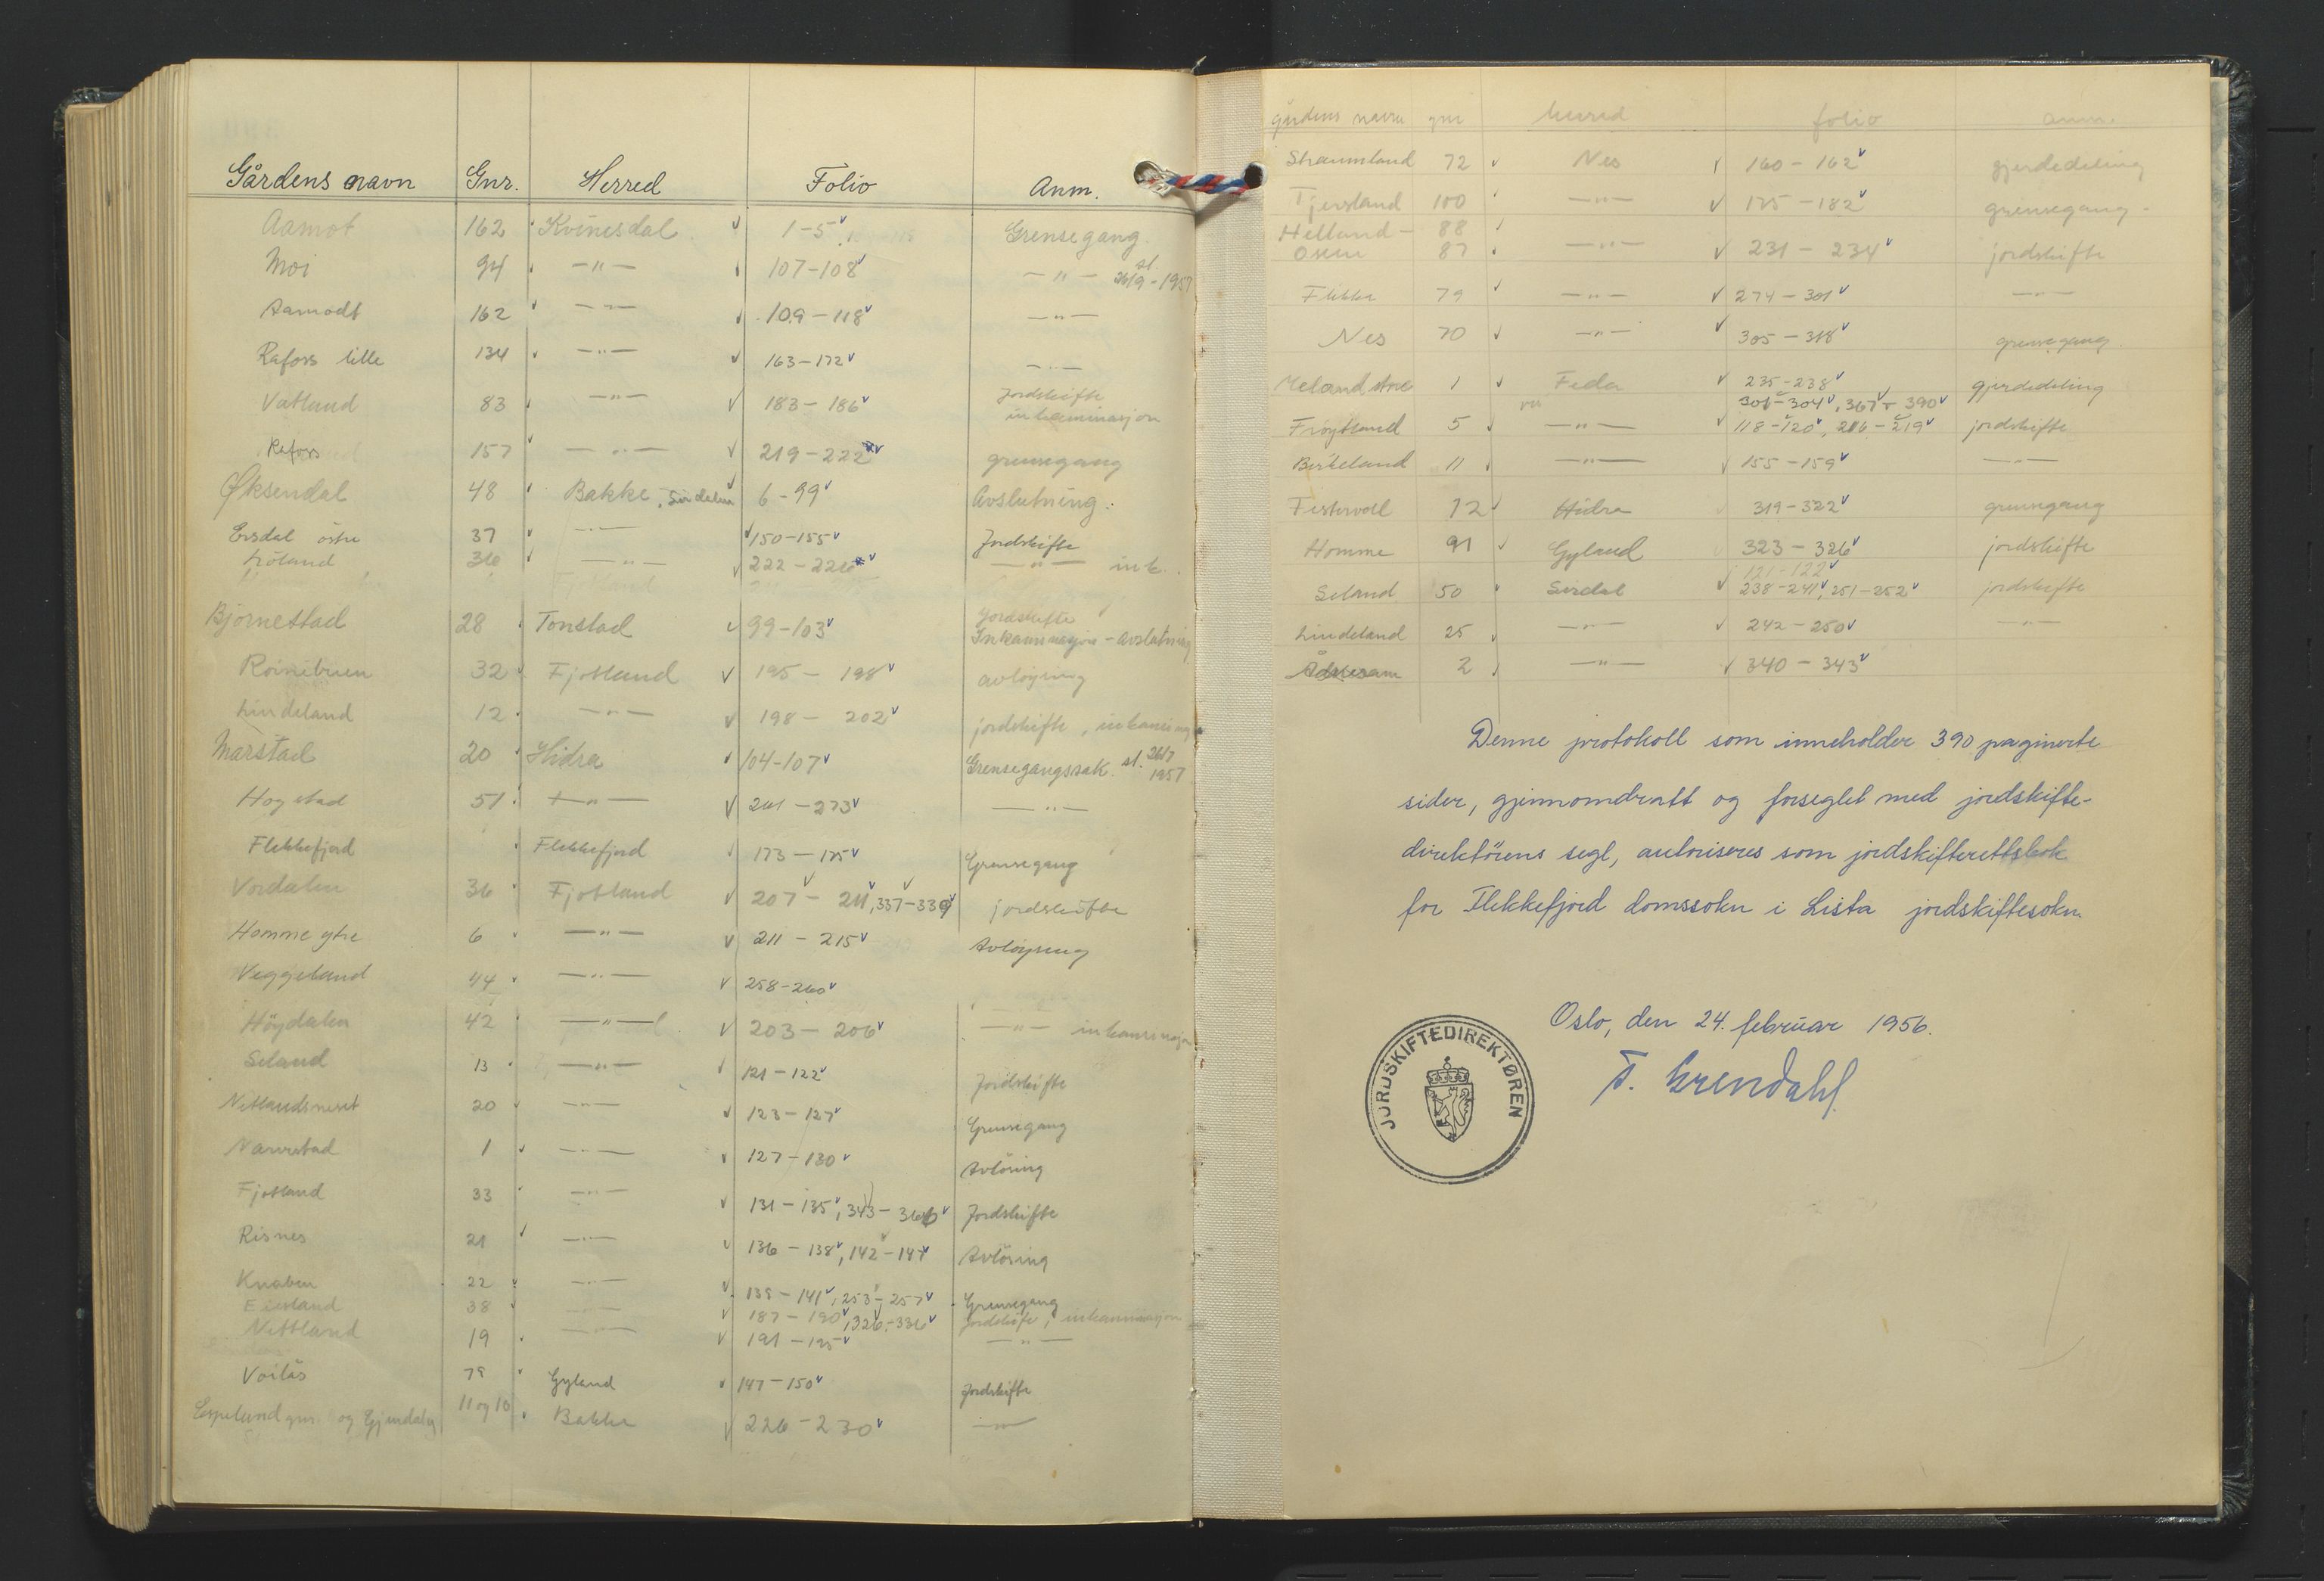 Gårdens navn Gnr. Herred Folio Anm.
Aamot 162 Kvinesdal 1-5 Grensegang.
Moi 94 -"- 107-108 -"- sl. 26/9-1957
Aamodt 162 -"- 109-118 -"-
Rafoss lille 134 -"- 163-172 -"-
Vatland 83 -"- 183-186 Jordskifte
inkaminasjon
Rafoss 157 -"- 219-222 grensegang
Øksendal 48 Bakke, Sirdalen 6-99 Avslutning.
Ersdal östre 37 -"- 150-155 Jordskifte
Löland 36 -"- 222-226 -"- ink.
Björnestad 28 Tonstad 99-103 Jordskifte
Inkaminasjon-avslutning
Roinebruen 32 Fjotland 195-198 avløysing
Lindeland 12 -"- 198-202 jordskifte, inkamina
Marstad 20 Hidra 104-107 Grensegangssak. sl. 26/7
1957
Hogstad 51 -"- 261-273 -"-
Flekkefjord Flekkefjord 173-175 Grensegang
Vordalen 36 Fjotland 207-211, 337-339 jordskifte
Homme ytre 6 -"- 211-215 Avløysing
Veggeland 44 -"- 258-260
Höydalen 42 -"- 203-206 -"- inkaminasjon
Seland 13 -"- 121-122 Jordskifte
Netlandsneset 20 -"- 123-127 Grensegang
Narvestad 1 -"- 127-130 Avlösing
Fjotland 33 -"- 131-135, 343-366 Jordskifte
Risnes 21 -"- 136-138, 142-147 Avlösing
Knaben 22 -"- 139-141, 253-257 Grensegang
Eiesland 38 -"- 187-190, 326-336 Jordskifte, inkaminasjon
Nettland 19 -"- 191-195 -"-
Voilås 79 Gyland 147-150 Jordskifte
Espeland gnr. og Gjendalen 11 og 10 Bakke 226-230 -"-
gårdens navn gnr herred folio anm.
Straumland 72 Nes 160-162 gjerdedeling
Tjersland 100 -"- 175-182 grensegang-
Helland- 88
Osen 87 -"- 231-234 jordskifte
Flikka 79 -"- 274-301 -"-
Nes 70 -"- 305-318 grensegang.
Meland stre 1 Feda 235-238 gjerdedeling
301-304, 367-390
Frøytland 5 -"- 118-120, 216-219 jordskifte
Birkeland 11 -"- 155-159 -"-
Festervoll 12 Hidra 319-322 grensegang
Homme 91 Gyland 323-326 jordskifte
121-122
Seland 50 Sirdal 238-241, 251-252 jordskifte
Lindeland 25 -"- 242-250 -"-
Ådneram 2 -"- 340-343
Denne protokoll som inneholder 390 paginerte
sider, gjennomdratt og forseglet med jordskifte-
direktörens segl, autoriseres som jordskifterettsbok
for Flekkefjord domssokn i Lista jordskiftesokn.
Oslo, den 24. februar 1956.
T. Grendahl.
JORDSKIFTEDIREKTØREN